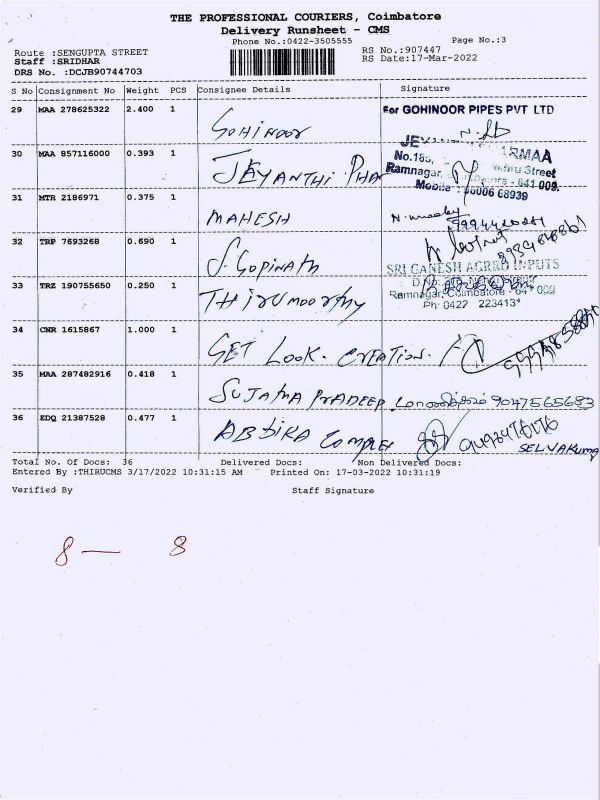 THE PROFESSIONAL COURIERS, Coimbatore
Delivery Runsheet - CMS
Phone No.:0422-3505555 Page No.:3
Route :SENGUPTA STREET RS No.:907447
Staff :SRIDHAR RS Date:17-Mar-2022
DRS No. :DCJB90744703
S No Consignment No Weight PCS Consignee Details Signature
29 MAA 278625322 2.400 1 GOHINOOR For GOHINOOR PIPES PVT LTD
30 MAA 857116000 0.393 1 JEYANTHI PHA
No.185,
Ramnagar, 641 009.
Mobile : 98939
31 MTR 2186971 0.375 1 MAHESH
32 TRP 7693268 0.690 1 J. GOPINATH
SRI GANESH AGRRO INPUTS
33 TRZ 190755650 0.250 1 THIRUMOORTHY
Ramnagar, Coimbatore - 641 009
Ph: 0422 2234131
34 CNR 1615867 1.000 1 GET LOOK. CREATION.
35 MAA 287482916 0.418 1 SUJATHA PRADEEP 9047565683
36 EDQ 21387528 0.477 1 ABDIRA COMPLEX SELVAKUMA
Total No. Of Docs: 36 Delivered Docs: Non Delivered Docs:
Entered By :THIRUCMS 3/17/2022 10:31:15 AM Printed On: 17-03-2022 10:31:19
Verified By Staff Signature
8 — 8